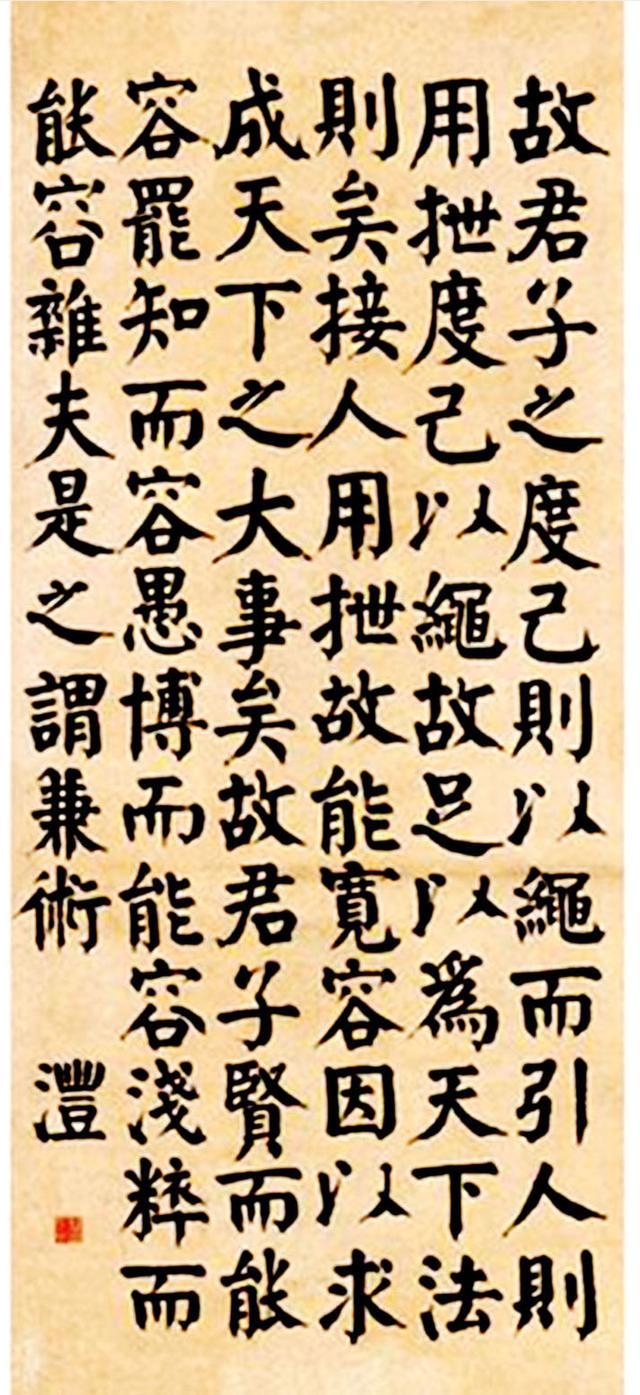 故君子之度己則以繩而引人則
用抴度己以繩故足以為天下法
則矣接人用抴故能寬容因以求
成天下之大事矣故君子賢而能
容罷知而容愚博而能容淺粹而
能容雜夫是之謂兼術
澧